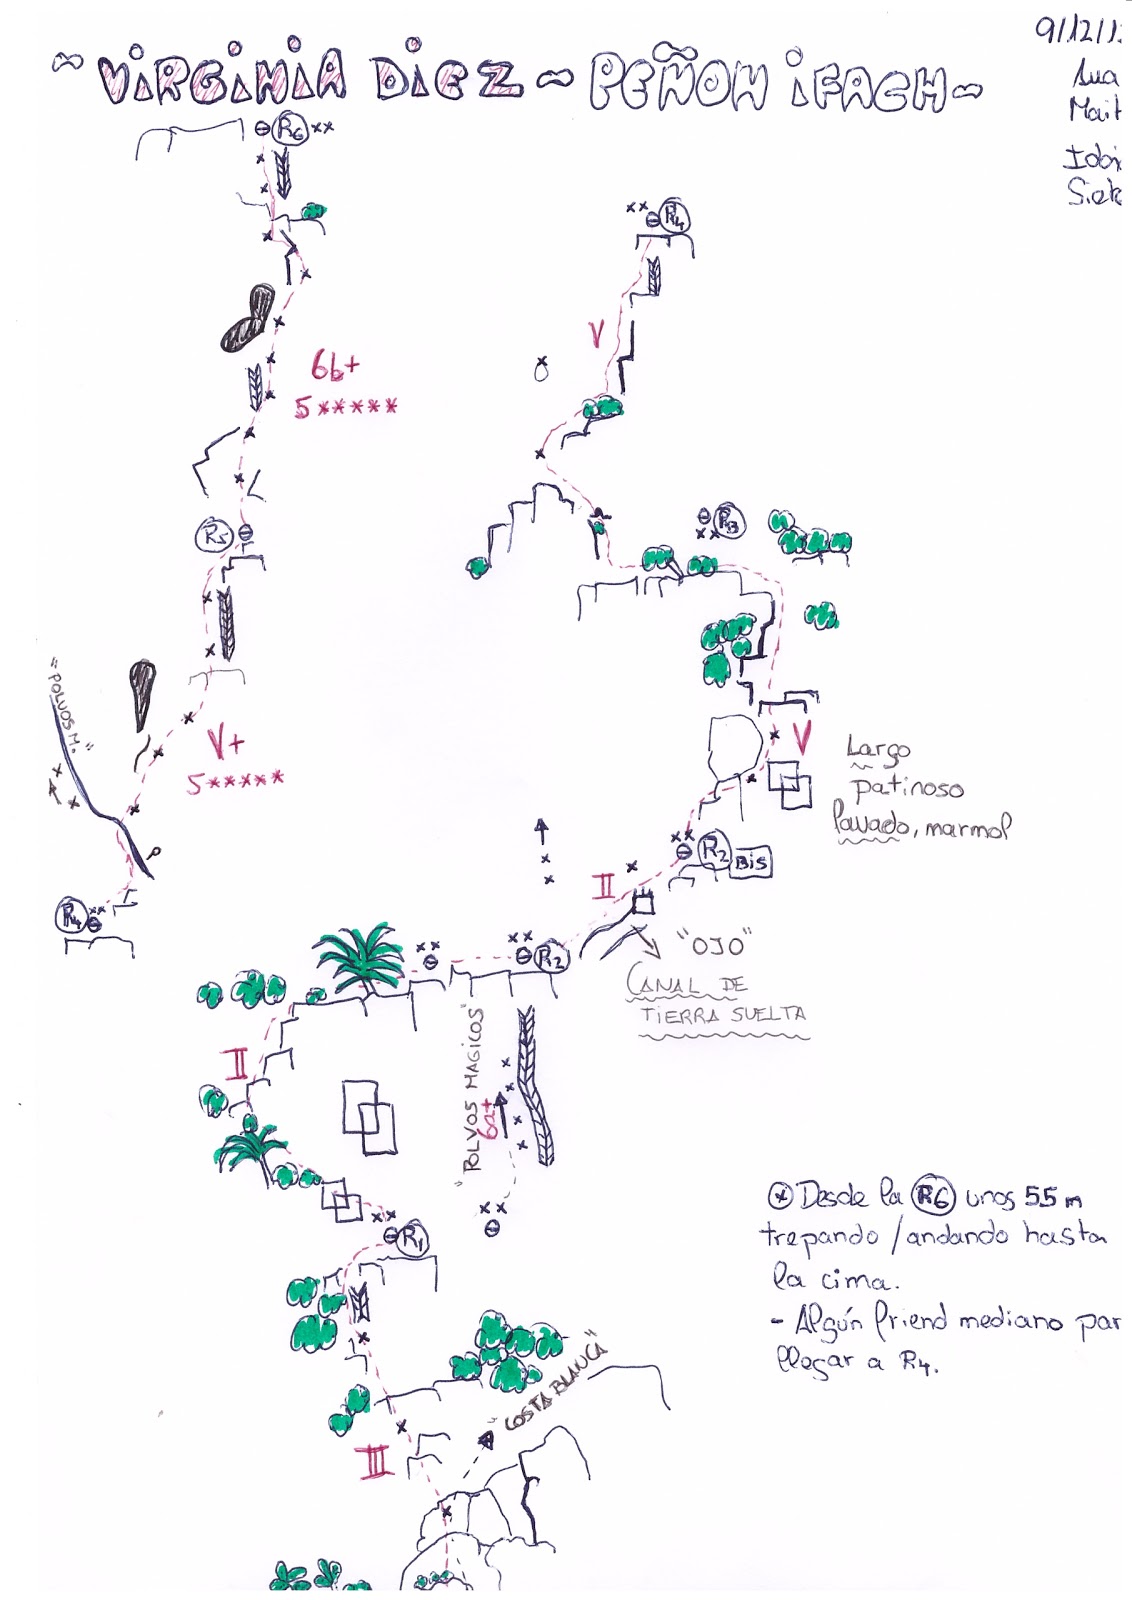 ~ VIRGINIA DIEZ ~ PEÑON IFACH ~
9/12/1
R6
R4
V
6b+
5*****
R5
R3
"POLVOS M."
V+
5*****
V
Largo
patinoso
lavado, marmol
R2 BIS
II
R4
R2
"OJO"
CANAL DE
TIERRA SUELTA
II
"POLVOS MAGICOS"
6a+
R1
Desde la R6 unos 55 m
trepando / andando hasta
la cima.
- Algún friend mediano par
llegar a R4.
"COSTA BLANCA"
III